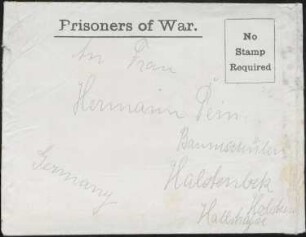 Prisoners of War.
No
Stamp
Required
An Frau
Hermann Pein
Baumschulen
Halstenbek
Holstein
Germany